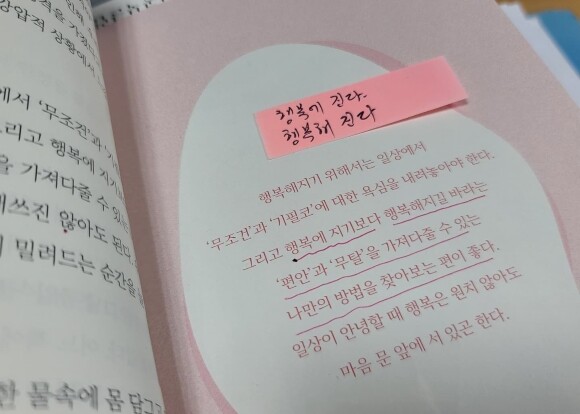 강압적 상황에서
에서 '무조건'과
그리고 행복에 지기보
을 가져다줄 수 있는
애쓰진 않아도 된다
밀려드는 순간을
한 물속에 몸 담그
행복에 진다.
행복해 진다
행복해지기 위해서는 일상에서
'무조건'과 '기필코'에 대한 욕심을 내려놓아야 한다.
그리고 행복에 지기보다 행복해지길 바라는
'편안'과 '무탈'을 가져다줄 수 있는
나만의 방법을 찾아보는 편이 좋다.
일상이 안녕할 때 행복은 원치 않아도
마음 문 앞에 서 있곤 한다.